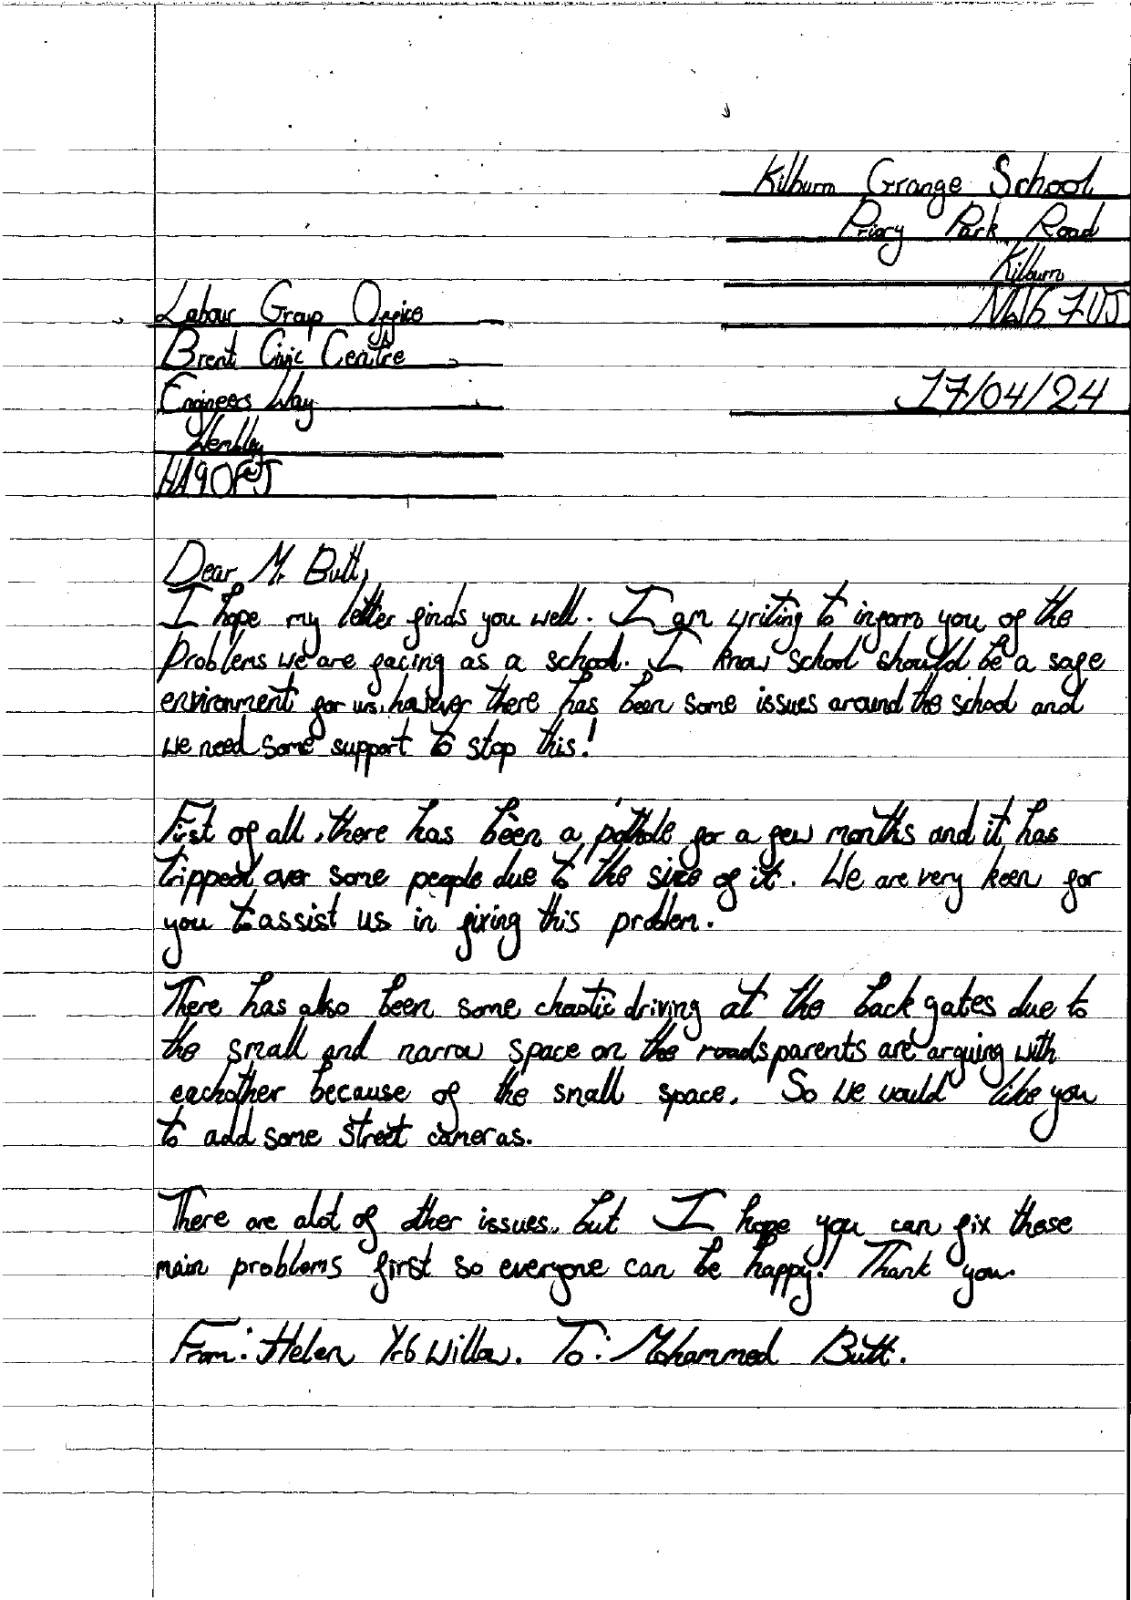 Kilburn Grange School
Priory Park Road
Kilburn
NW6 7UJ
Labour Group Office
Brent Civic Centre
Engineers Way
Wembley
HA9 0FJ
17/04/24
Dear Mr Butt,
I hope my letter finds you well. I am writing to inform you of the
problems we are facing as a school. I know school should be a safe
environment for us, however there has been some issues around the school and
we need some support to stop this!
First of all, there has been a pothole for a few months and it has
tripped over some people due to the size of it. We are very keen for
you to assist us in fixing this problem.
There has also been some chaotic driving at the back gates due to
the small and narrow space on the roads parents are arguing with
eachother because of the small space. So we would like you
to add some street cameras.
There are alot of other issues, but I hope you can fix these
main problems first so everyone can be happy! Thank you.
From: Helen Yr6 Willow. To: Mohammed Butt.